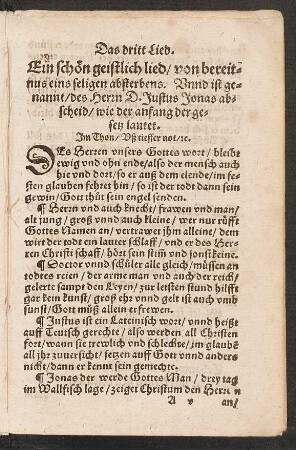 Das dritt Lied.
Ein schön geistlich lied / von bereit-
nus eins seligen absterbens. Vnnd ist ge-
nannt / des Herrn D. Justus Jonas ab-
scheid / wie der anfang der ge-
setz lautet.
Im Thon / Vß tieffer not / ꝛc.
DEs Herren vnsers Gottes wort / bleibt
ewig vnd ohn ende / also der mensch auch
hie vnd dort / so er auß dem elende / im fe-
sten glauben fehret hin / so ist der todt dann sein
gewin / Gott thüt sein engel senden.
¶ Herrn vnd auch knecht / frawen vnd man /
alt jung / groß vnd auch kleine / wer nur rüfft
Gottes Namen an / vertrawet jhm alleine / dem
wirt der todt ein lauter schlaff / vnd er des Her-
ren Christi schaff / hört sein stim vnd sonst keine.
¶ Doctor vnnd schüler alle gleich / müssen an
todtes reien / der arme man vnd auch der reich /
gelerte sampt den Leyen / zur letsten stund hilfft
gar kein kunst / groß ehr vnnd gelt ist auch vmb
sunst / Gott müß allein erfrewen.
¶ Justus ist ein Lateinisch wort / vnnd heißt
auff Teutsch gerechte / also werden all Christen
fort / wann sie trewlich vnd schlechte / im glaubē
all jhr zuuersicht / setzen auff Gott vnnd anders
nicht / dann er kennt sein gemechte.
¶ Jonas der werde Gottes Man / drey tag
im Wallfisch lage / zeiget Christum den Herren
A v an /